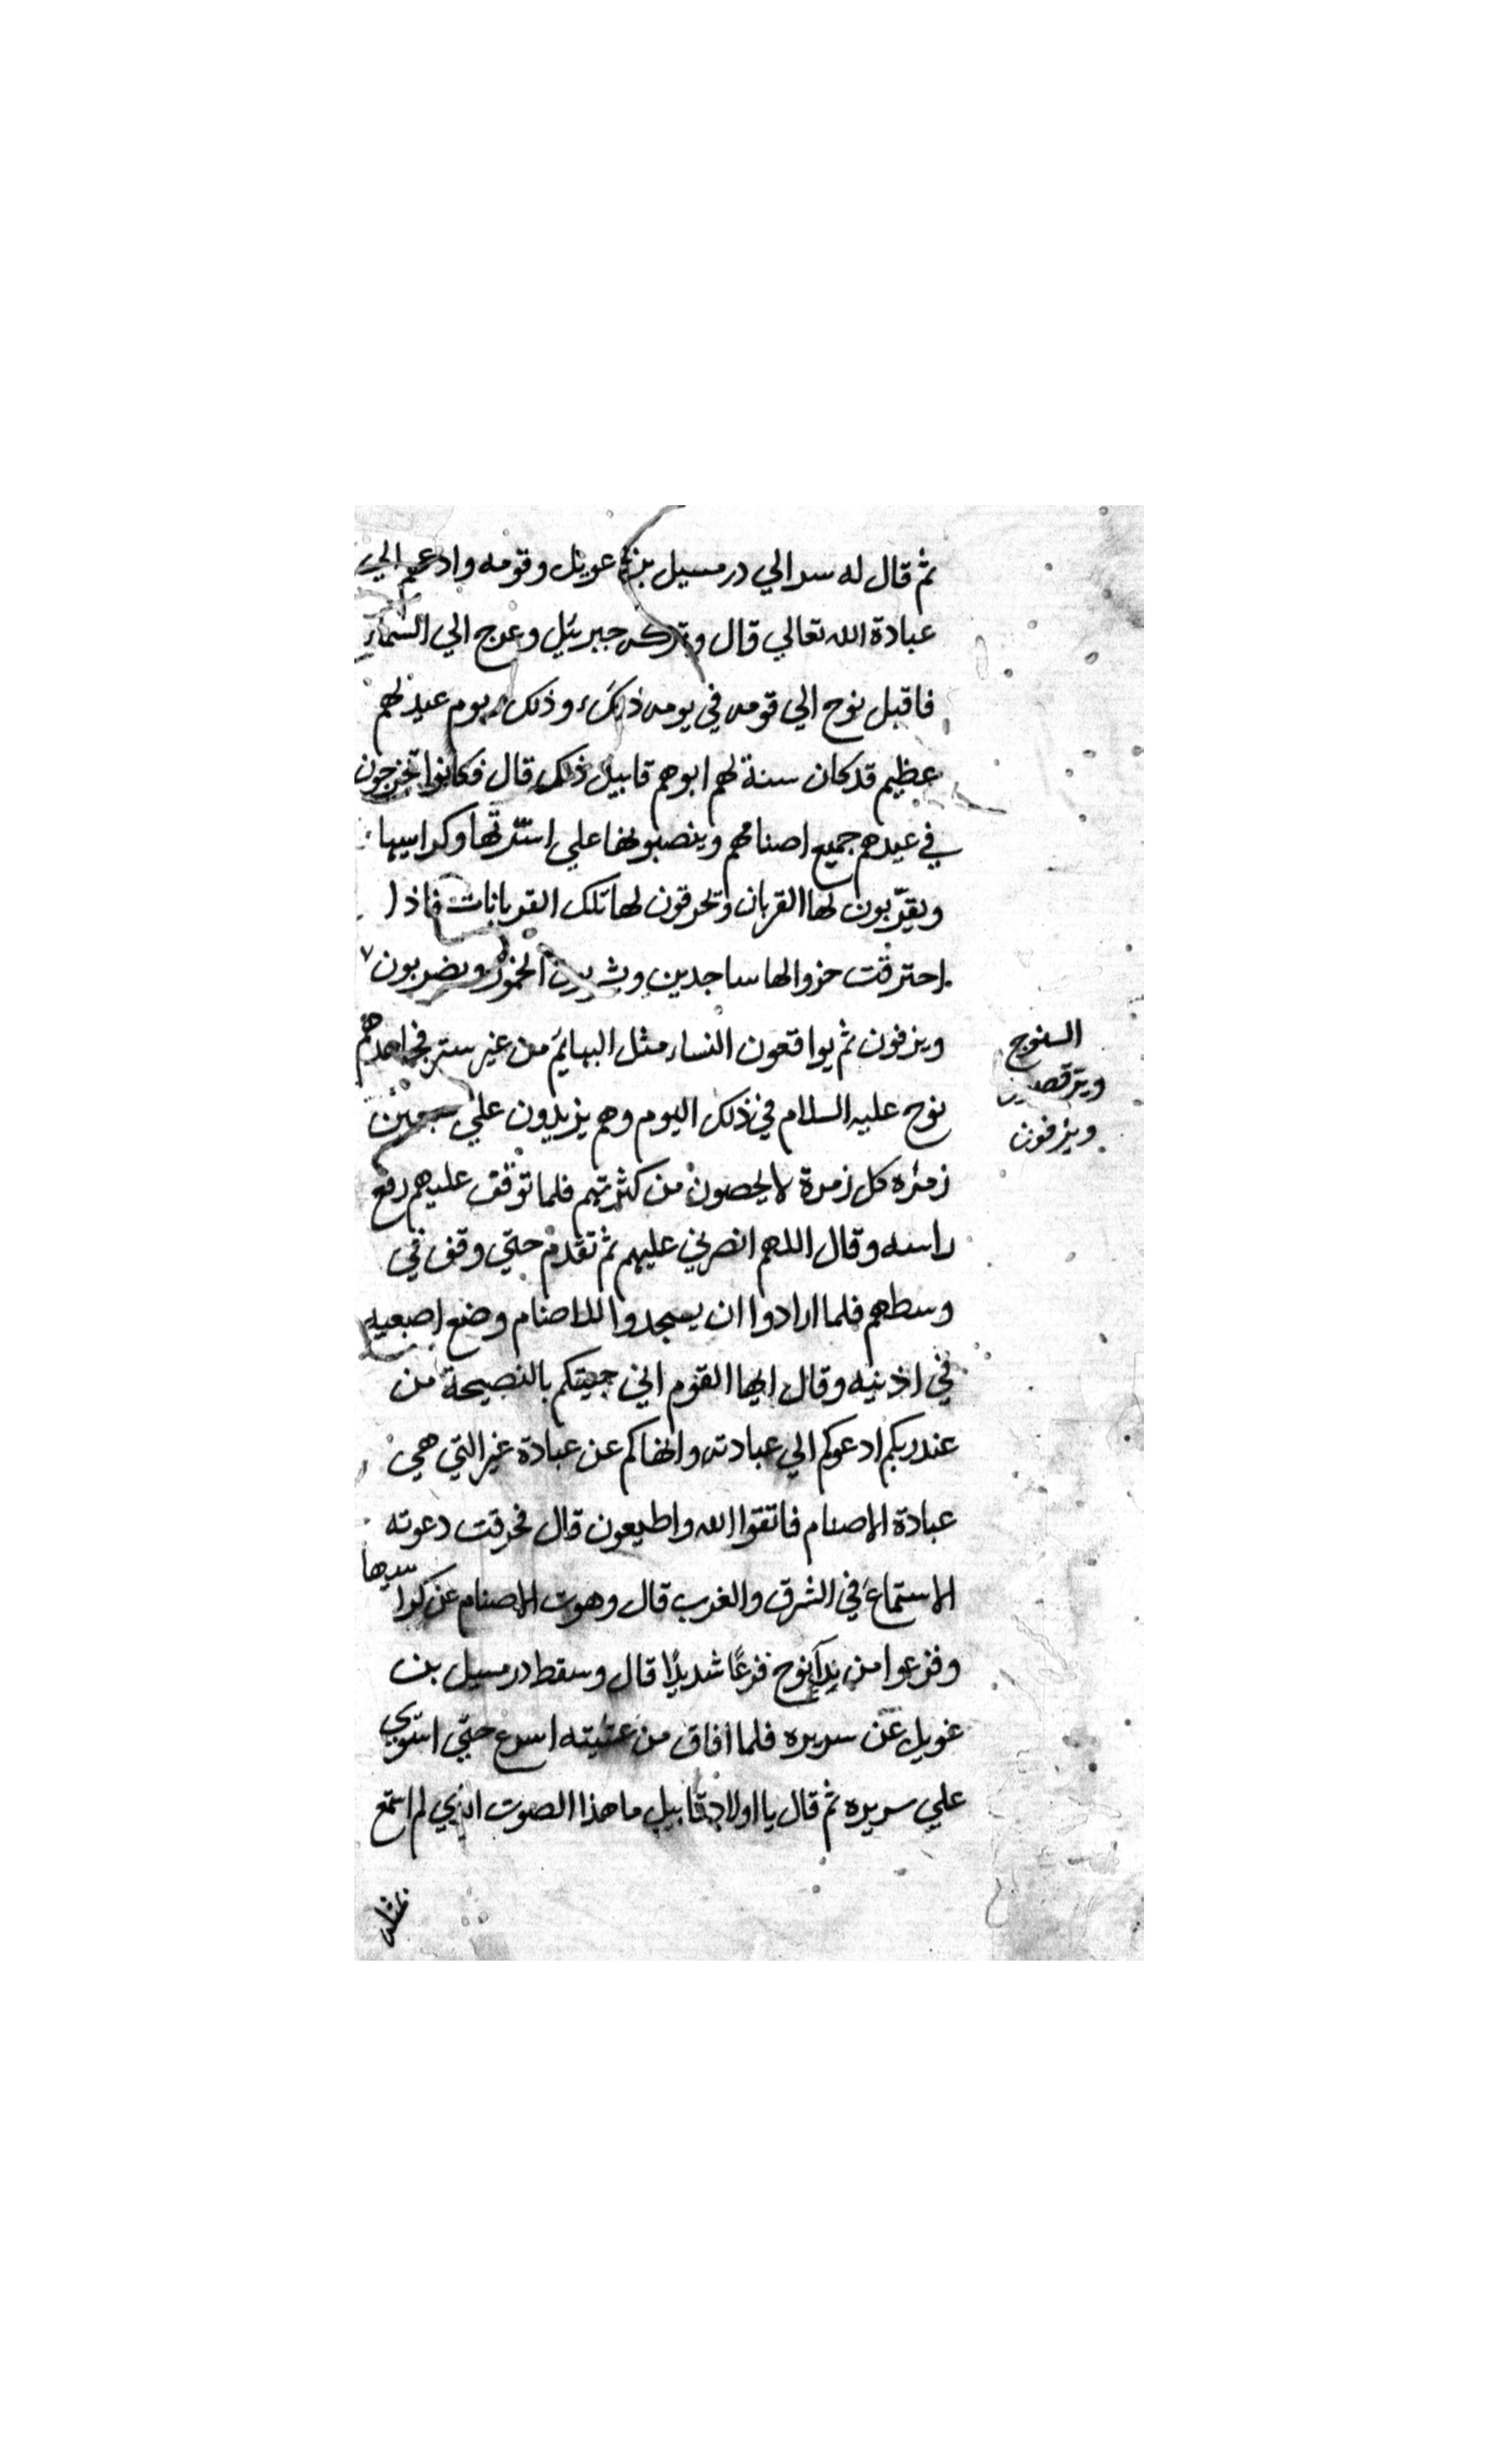 ثم قال له سر الي درمسيل بن عويل وقومه وادعهم الي
عبادة الله تعالي قال وتركه جبرئيل وعرج الي السماء
فاقبل نوح الي قومه في يومه ذلك وذلك يوم عيد لهم
عظيم قد كان سنة لهم ابوهم قابيل ذلك قال فكانوا يخرجون
في عيدهم جميع اصنامهم وينصبونها علي اسرتها وكراسيها
ويقربون لها القربان وتحرقون لها تلك القربانات فاذا
احترقت خروا لها ساجدين وشربون الخمور ويضربون
السنوج
ويترقصون
ويزفون
ويزفون ثم يواقعون النساء مثل البهائم من غير ستر فجاهم
نوح عليه السلام في ذلك اليوم وهم يزيدون علي سبعين
زمره كل زمرة لا يحصون من كثرتهم فلما توقف عليهم رفع
راسه وقال اللهم انصرني عليهم ثم تقدم حتي وقف في
وسطهم فلما ارادوا ان يسجدوا للاصنام وضع اصبعيه
في اذنيه وقال ايها القوم اني جيتكم بالنصيحة من
عند ربكم ادعوكم الي عبادته وانهاكم عن عبادة غير التي هي
عبادة الاصنام فاتقوا الله واطيعون قال فخرقت دعوته
الاستماع في الشرق والغرب قال وهوت الاصنام عن كراسيها
وفزعوا من ندآ نوح فزعًا شديدًا قال وسقط درمسيل بن
غويل عن سريره فلما افاق من غشيته اسرع حتي استوي
علي سريره ثم قال يا اولاد قابيل ما هذا الصوت الذي لم استمع
بمثله